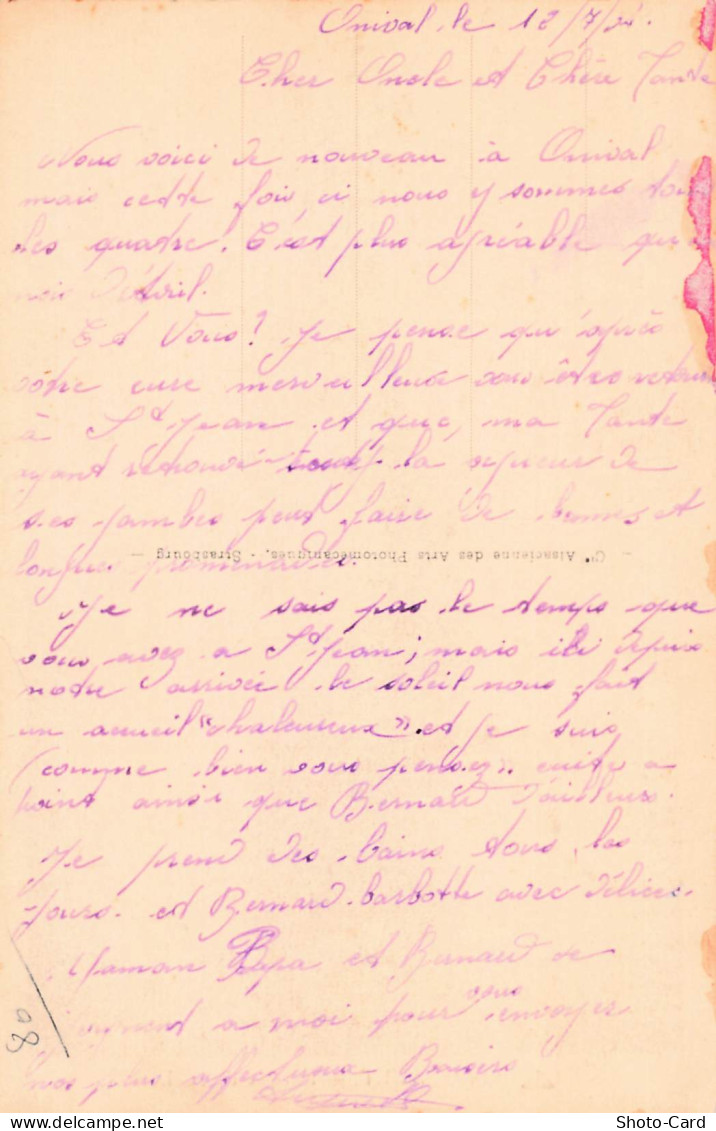 Onival le 12/7/
Cher Oncle et Chère Tante
Nous voici de nouveau à Onival
mais cette fois ci nous y sommes tous
les quatre. C'est plus agréable qu'au
mois d'Avril.
Et Vous? Je pense qu'après
votre cure merveilleuse vous êtes
à St Jean et que, ma Tante
ayant retrouvé la vigueur de
ses jambes peut faire de bonnes et
longues promenades.
Cie Alsacienne des Arts Photomécaniques, - Strasbourg
Je ne sais pas le temps que
vous avez a St Jean; mais ici depuis
notre arrivée le soleil nous fait
un accueil "chaleureux" et je suis
(comme bien vous pensez" cuite a
point ainsi que Bernard d'ailleurs.
Je prend des bains tous les
jours et Bernard barbotte avec délices.
Maman Papa et Bernard se
joignent a moi pour vous envoyer
nos plus affectueux Baisers
08
Photo-Card